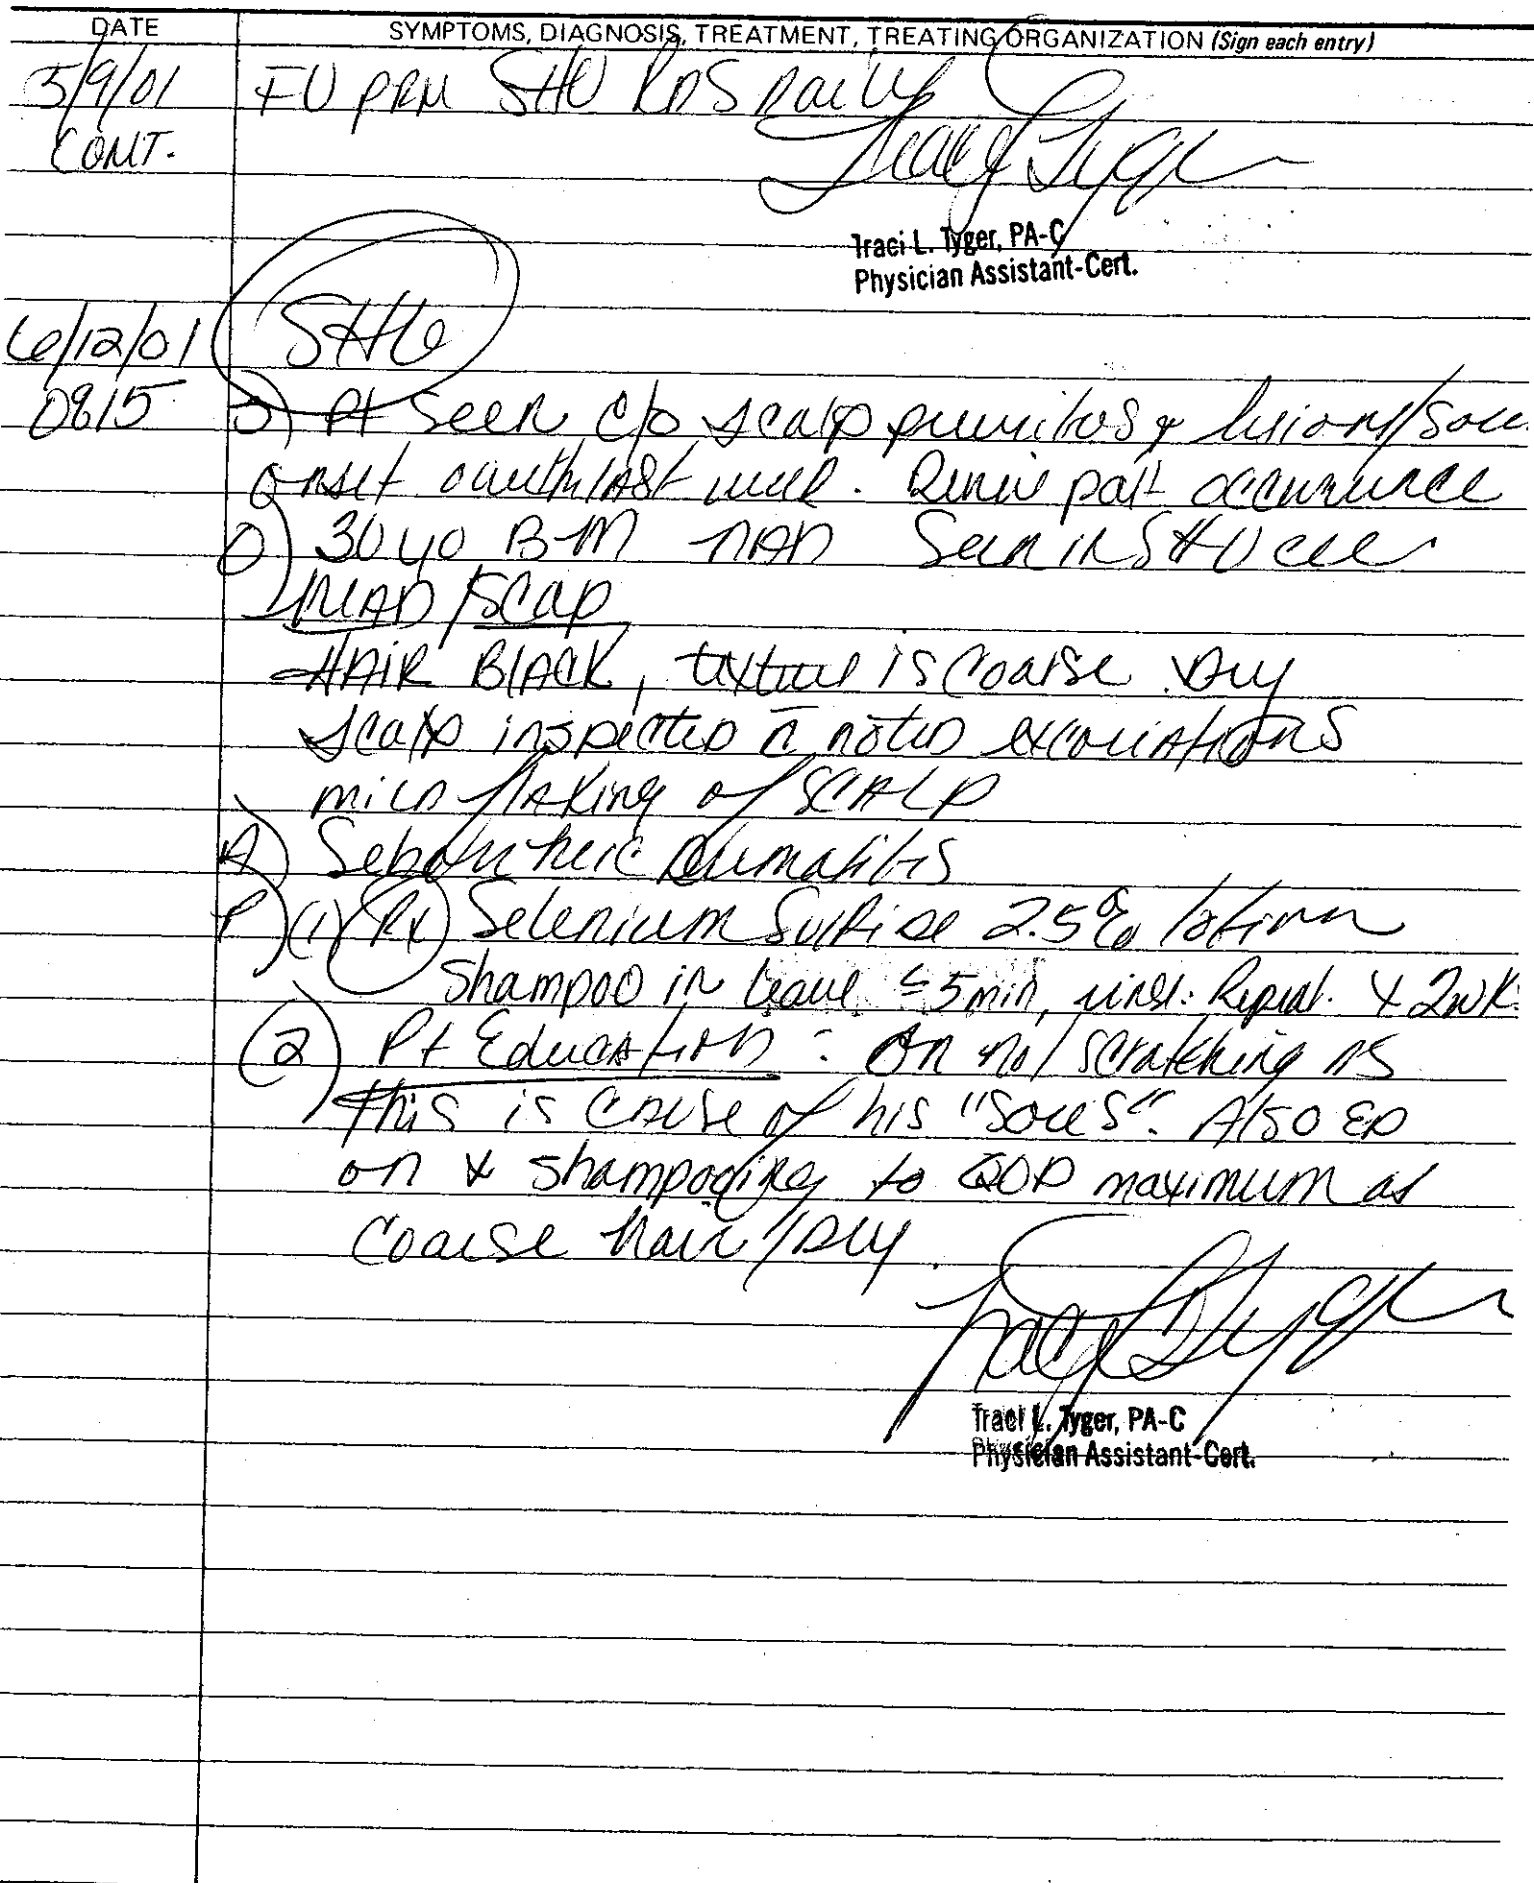 DATE SYMPTOMS, DIAGNOSIS, TREATMENT, TREATING ORGANIZATION (Sign each entry)
5/9/01 FU PRN SHU RDS Daily
CONT.
Traci L. Tyger, PA-C
Physician Assistant-Cert.
6/12/01 SHU
0815 S) Pt seen c/o scalp pruritus & lesions/sores
onset last week. Denies past occurrence
O) 30 yo B-M NAD Seen in SHU cell
HEAD/SCAP
HAIR BLACK, texture is coarse. Dry
scalp inspected c̄ noted excoriations
mild flaking of SCALP
A) Seborrheic Dermatitis
P) (1) Rx) Selenium Sulfide 2.5% lotion
Shampoo in leave ≤5min, rinse. Repeat. X 2wk.
(2) Pt Education: On no/ scratching as
this is cause of his "sores". Also ED
on shampooing to QOD maximum as
coarse hair/DRY.
Traci L. Tyger, PA-C
Physician Assistant-Cert.